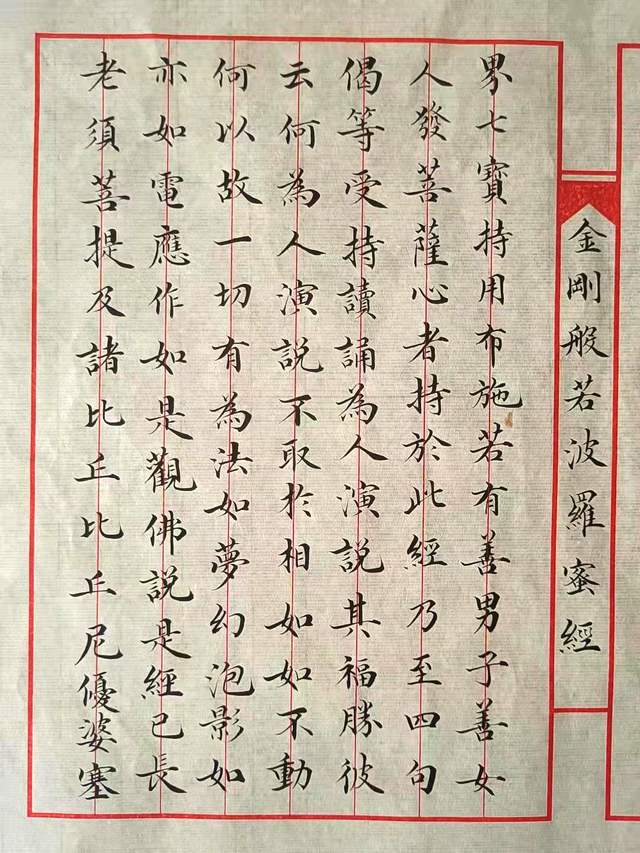 金剛般若波羅蜜經
界七寶持用布施若有善男子善女
人發菩薩心者持於此經乃至四句
偈等受持讀誦為人演説其福勝彼
云何為人演説不取於相如如不動
何以故一切有為法如夢幻泡影如
亦如電應作如是觀佛説是經已長
老須菩提及諸比丘比丘尼優婆塞